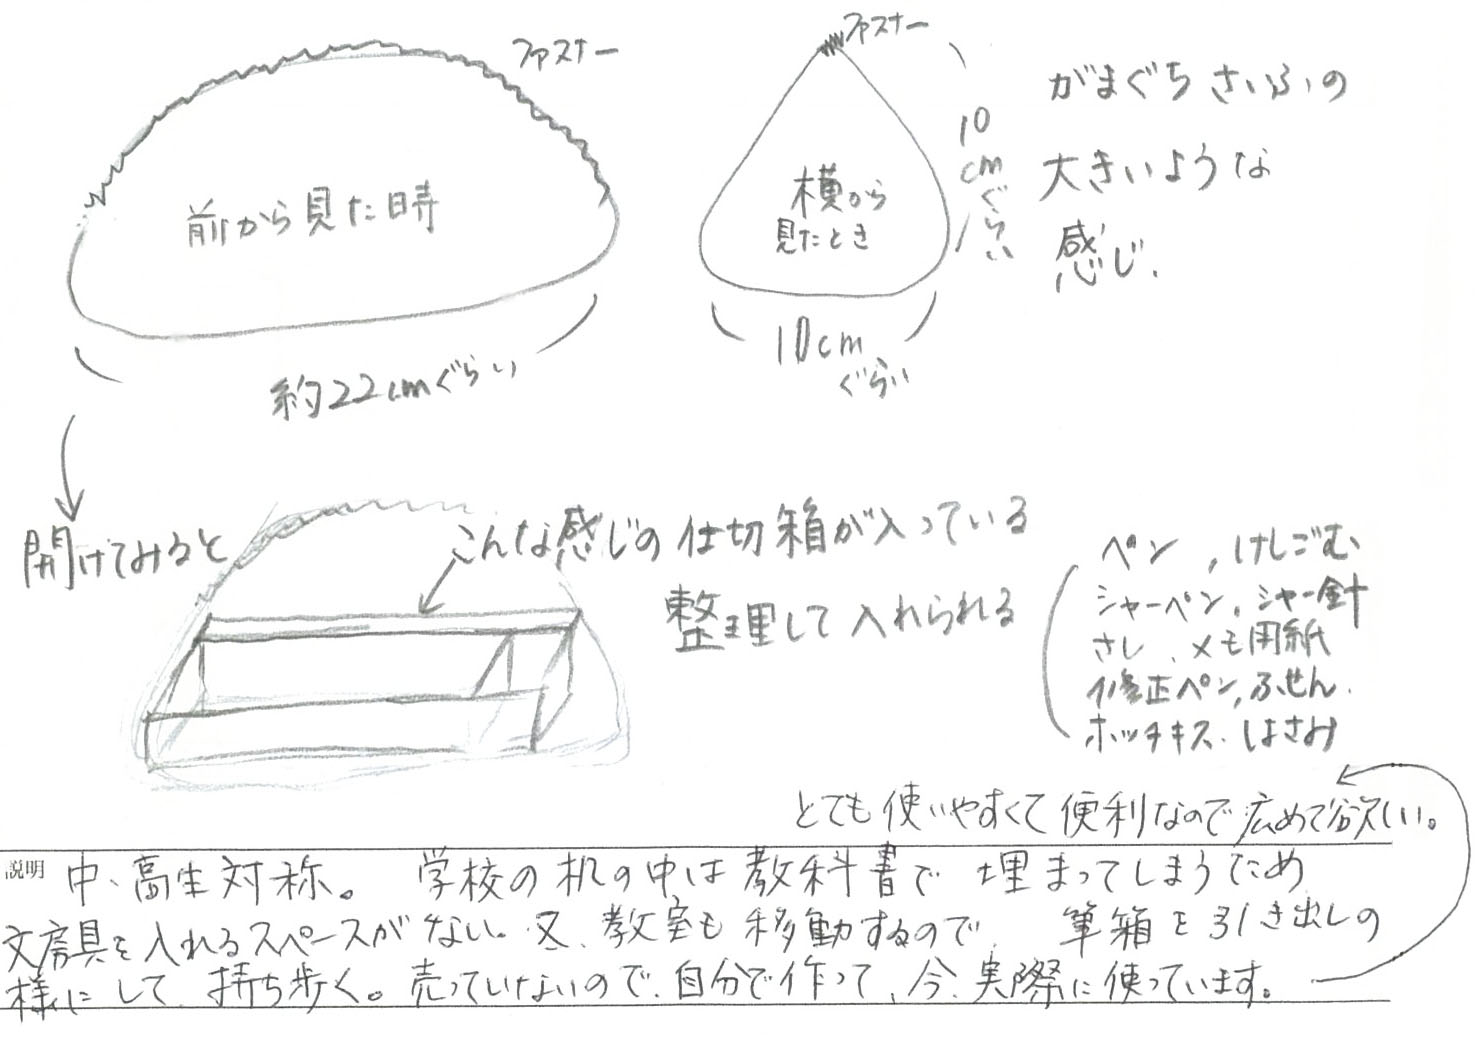 ファスナー
前から見た時
約22cmぐらい
ファスナー
横から
見たとき
10cmぐらい
10cm
ぐらい
がまぐちさいふの
大きいような
感じ.
開けてみると
こんな感じの仕切箱が入っている
整理して入れられる
ペン,けしごむ
シャーペン,シャー針
さし、メモ用紙
修正ペン,ふせん.
ホッチキス.はさみ
説明 中、高生対称。 学校の机の中は教科書で埋まってしまうため
文房具を入れるスペースがない。又、教室も移動するので、筆箱を引き出しの
様にして、持ち歩く。売っていないので、自分で作って、今、実際に使っています。
とても使いやすくて便利なので広めて欲しい。